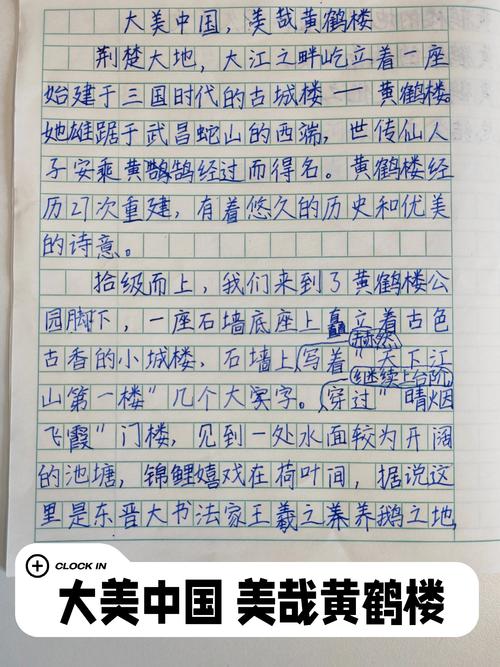 大美中国，美哉黄鹤楼
荆楚大地，大江之畔屹立着一座
始建于三国时代的古城楼——黄鹤楼。
她雄踞于武昌蛇山的西端，世传仙人
子安乘黄鹄经过而得名。黄鹤楼经
历27次重建，有着悠久的历史和优美
的诗意。
拾级而上，我们来到了黄鹤楼公
园脚下，一座石墙底座上矗立着古色
古香的小城楼，石墙上赫然写着"天下江
山第一楼"几个大字。继续上台阶，穿过"晴烟
飞霞"门楼，见到一处水面较为开阔
的池塘，锦鲤嬉戏在荷叶间，据说这
里是东晋大书法家王羲之养鹅之地，
CLOCK IN
大美中国 美哉黄鹤楼